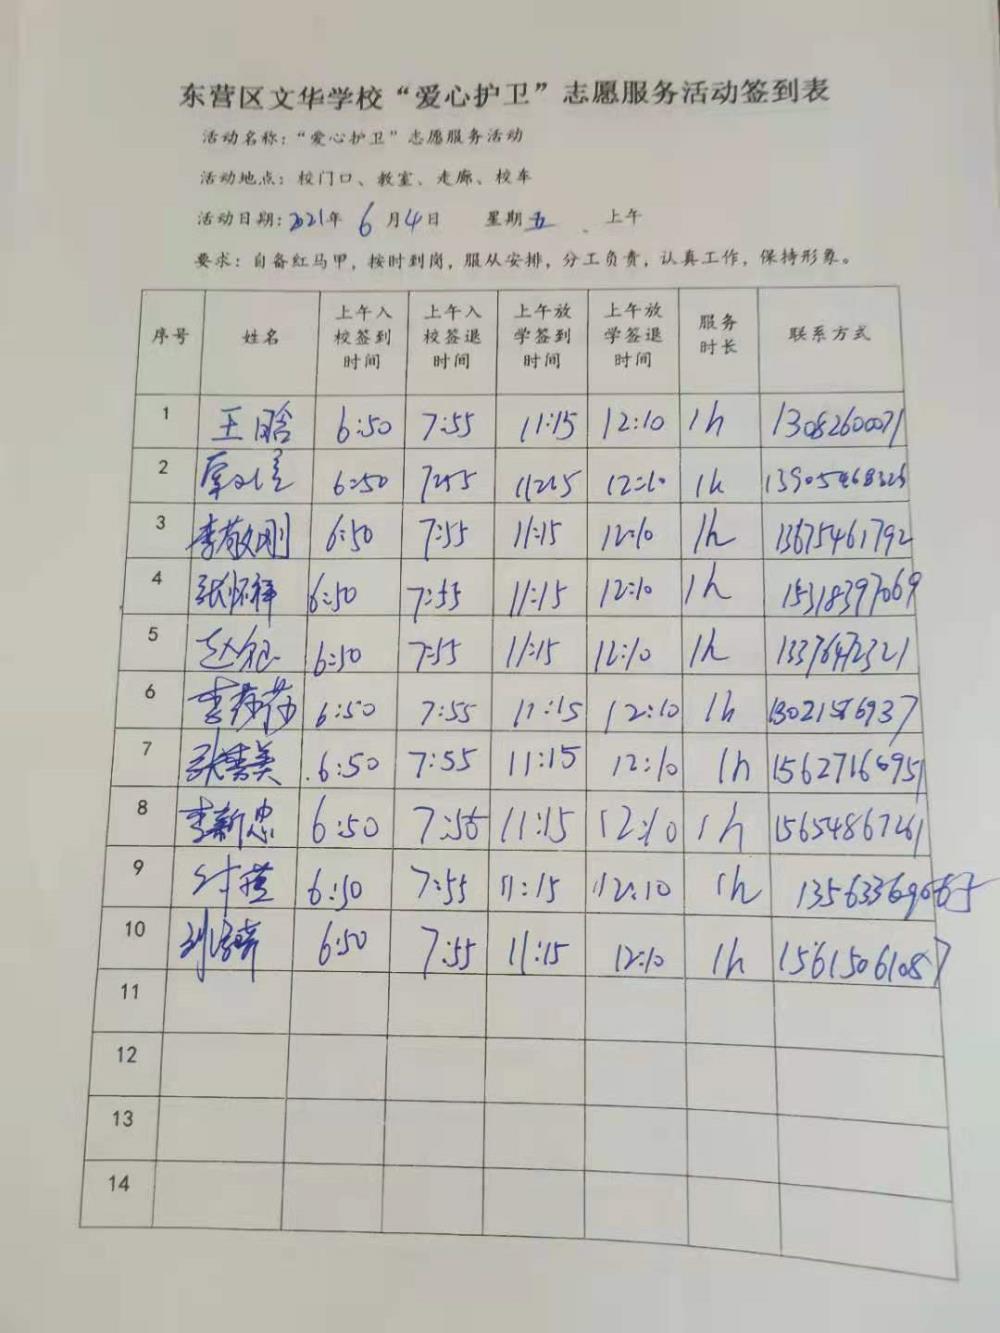 东营区文华学校“爱心护卫”志愿服务活动签到表
活动名称：“爱心护卫”志愿服务活动
活动地点：校门口、教室、走廊、校车
活动日期：2021年 6 月4日 星期五 上午
要求：自备红马甲，按时到岗，服从安排，分工负责，认真工作，保持形象。
序号 姓名 上午入校签到时间 上午入校签退时间 上午放学签到时间 上午放学签退时间 服务时长 联系方式
1 王晗 6:50 7:55 11:15 12:10 1h 13082600071
2 6:50 7:55 11:15 12:10 1h
3 李敬刚 6:50 7:55 11:15 12:10 1h 13675461792
4 张怀祥 6:50 7:55 11:15 12:10 1h 15318397069
5 6:50 7:55 11:15 12:10 1h 13376472321
6 李莎莎 6:50 7:55 11:15 12:10 1h
7 6:50 7:55 11:15 12:10 1h
8 李新忠 6:50 7:56 11:15 12:10 1h 15654867261
9 6:50 7:55 11:15 12:10 1h
10 6:50 7:55 11:15 12:10 1h 15615061087
11
12
13
14